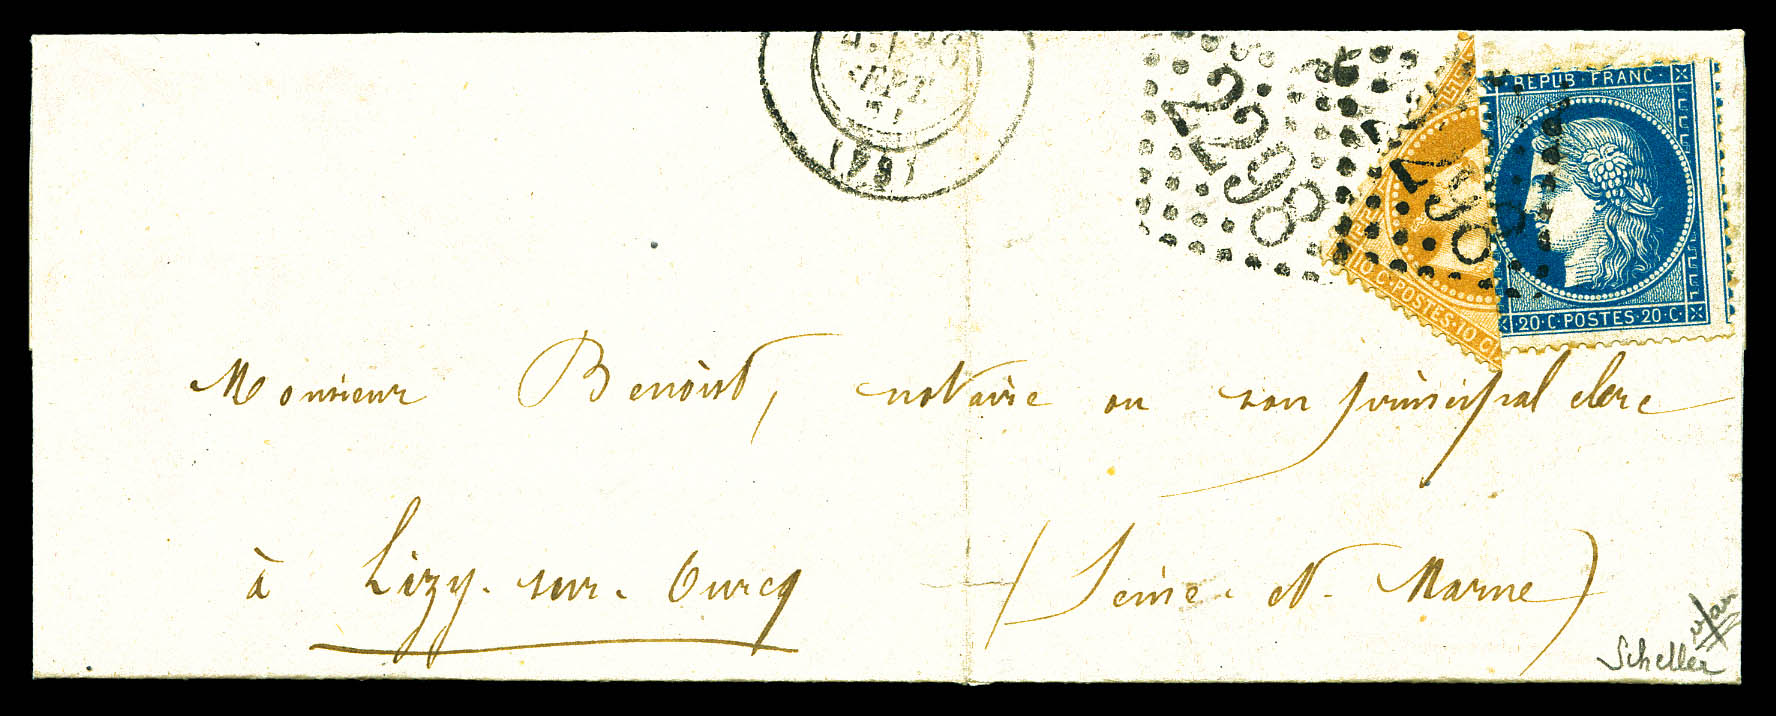 SEPT.
71
(64)
2698
2698
REPUB. FRANC.
10 C. POSTES. 10 C
20. C. POSTES. 20. C.
Monsieur Benoist, notaire ou son principal clerc
à Lizy-sur-Ourcq (Seine-et-Marne)
Scheller